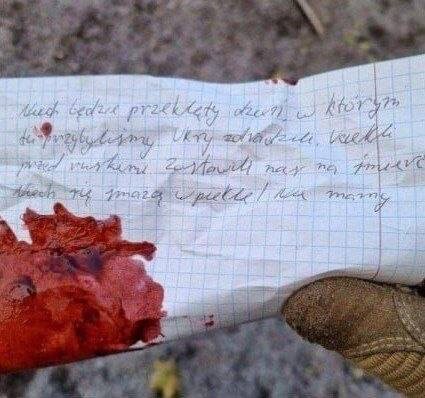 Niech będzie przeklęty dzień, w którym
tu przybyliśmy. Ukry zdradzili, uciekli
przed ruskimi. Zostawili nas na śmierć
Niech się smażą w piekle! Nie mamy